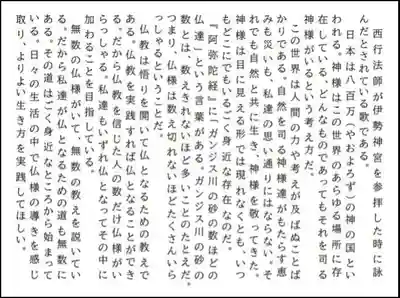 西行法師が伊勢神宮を参拝した時に詠
んだとされている歌である。
日本は、八百万(やおよろず)の神の国とい
われる。神様はこの世界のあらゆる場所に存
在している。どんなものであってもそれを司る
神様がいるという考え方だ。
この世界は、人間の力や考えが及ばぬことば
かりである。自然を司る神様達がもたらす恵
みも災いも、私達の思い通りにはならない。そ
れでも自然と共に生き、神様を敬ってきた。
神様は目に見える形では現れなくとも、いつ
もどこにでもいるごく身近な存在なのだ。
『阿弥陀経』に「ガンジス川の砂の数ほどの
仏達」という言葉がある。ガンジス川の砂の
数とは、数えきれないほど多いことのたとえだ。
つまり、仏様は数え切れないほどたくさんいら
っしゃるということだ。
仏教は悟りを開いて仏となるための教えで
ある。仏教を実践すれば仏となることができ
る。だから仏教を信じた人の数だけ仏様がい
らっしゃる。私達もいずれ仏となってその中に
加わることを目指している。
無数の仏様がいて、無数の教えを説いてい
る。だから私達が仏となるための道も無数に
ある。その道はごく身近なところから始まって
いる。日々の生活の中で仏様の導きを感じ
取り、よりよい生き方を実践してほしい。